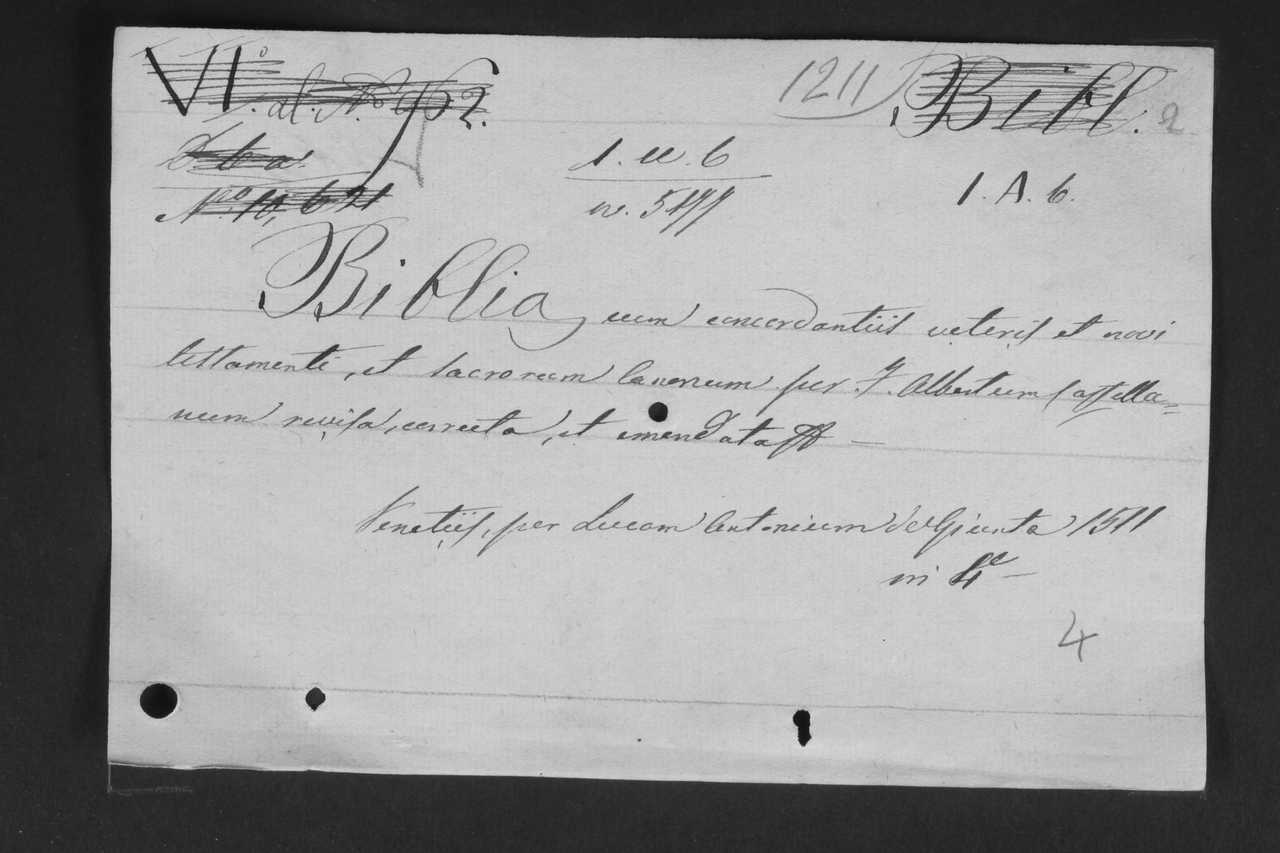 VI.° al. N.° 952. 1211 Bibl. 2
1. cc. 6
N.° 10, b 21 1. A. 6.
Biblia cum concordantiis veteris et novi
testamenti, et sacrorum Canonum per F. Albertum Castella=
num revisa, correcta, et emendata —
Venetiis, per Lucam Antonium de Giunta 1511
in 4.° —
4